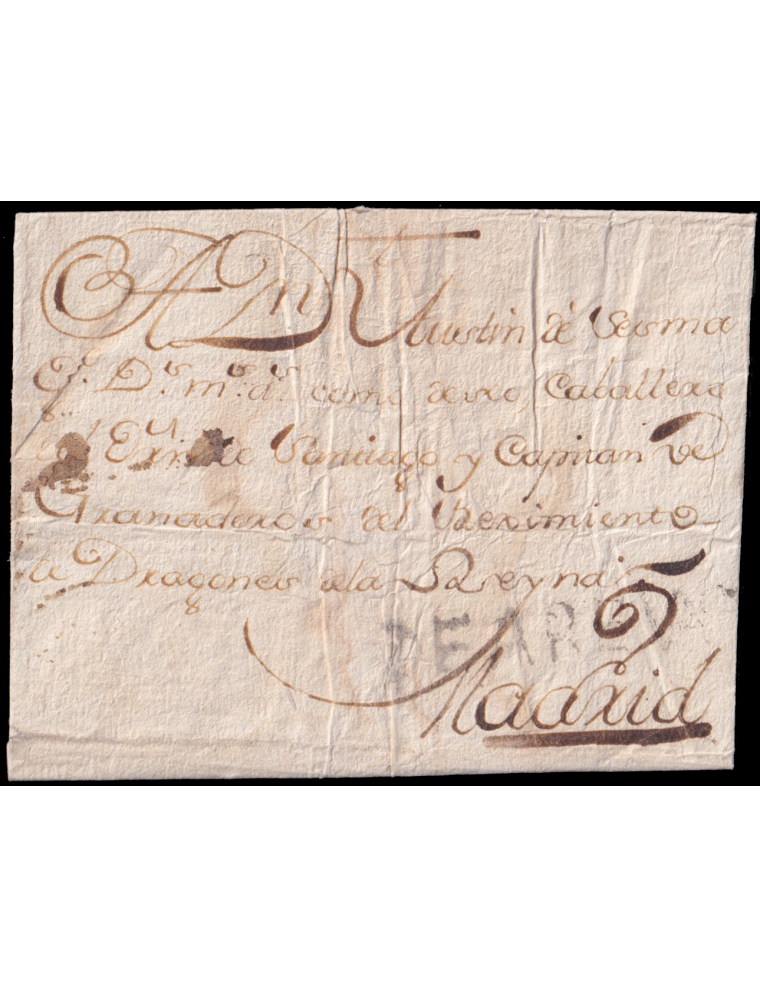 A Dn Austin de Sesma
gs. Ds. ms. ds. como deseo, Caballero
de Santiago y Capitan de
Granaderos del Reximiento
de Dragones de la Reyna
5
DE AREV
Madrid